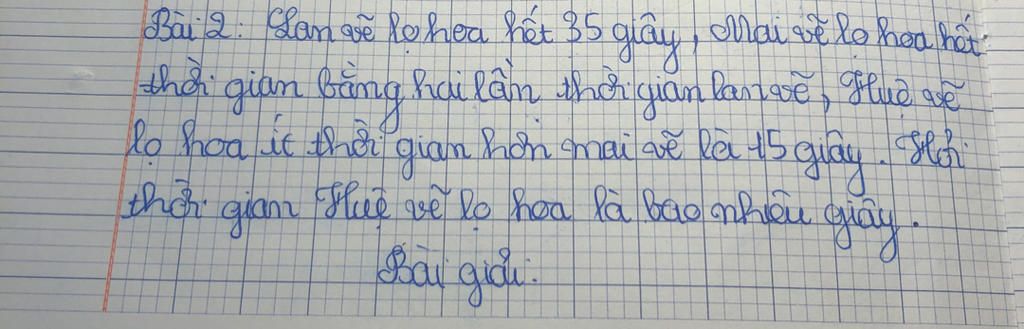 Bài 2: Lan vẽ lọ hoa hết 35 giây, Mai vẽ lọ hoa hết
thời gian bằng hai lần thời gian Lan vẽ, Huệ vẽ
lọ hoa ít thời gian hơn mai vẽ là 15 giây. Hỏi
thời gian Huệ vẽ lọ hoa là bao nhiêu giây.
Bài giải: